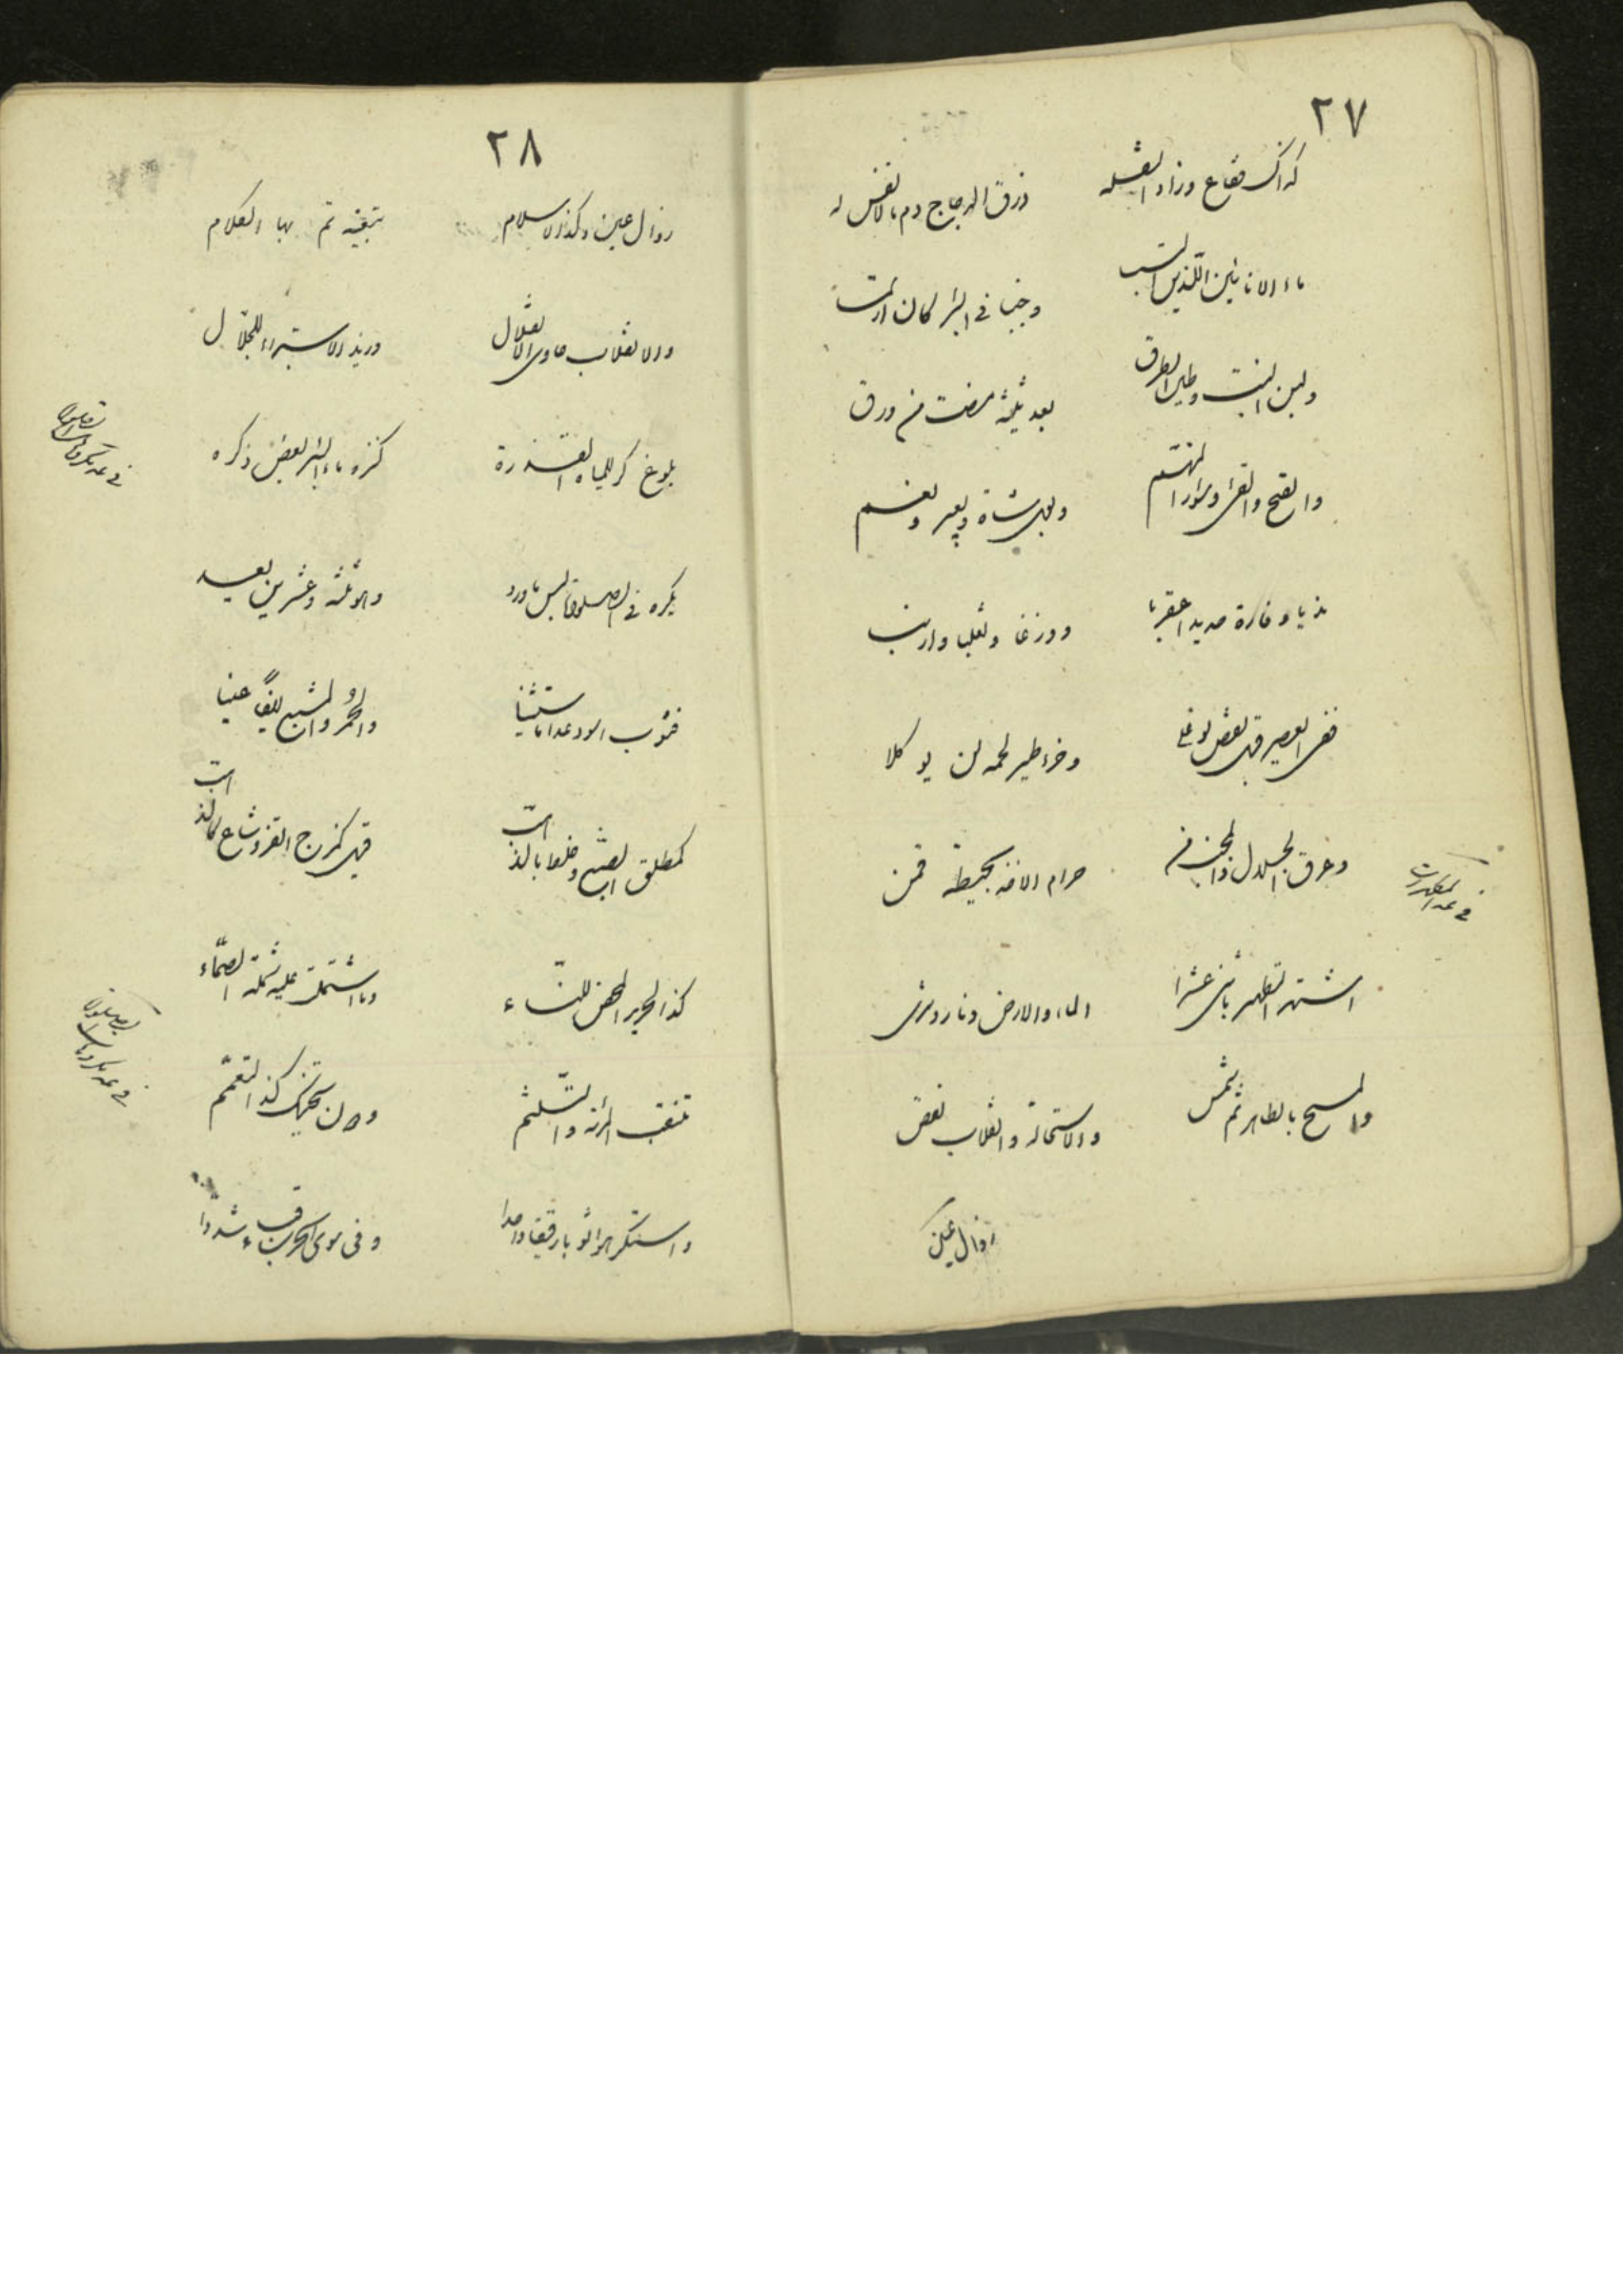 ٢٧
كذاك فقاع وزاد الغسله ذرق الدجاج دم ما لا نفس له
ماء الانائين اللذين اشتبه وجنبا في البئر كان ارتمس
ولبن البنت وطين الطرق بعد ثلثة مضت من ورق
والقيح والقئ وسؤر المتهم وبول شاة وبعير وغنم
مذيا وفارة حديد عقربا ووزغا وثعلبا وارنبا
ففي العصير قيل بعض لو غلى وخرء طير لحمه لن يوكلا
وعرق الجلال والمجنب من حرام الافة محيطة قمن
في عد المطهرات
اشتهر التطهير باثنى عشرا الماء والارض ونار وثرى
والمسح بالطاهر ثم شمس والاستحالة وانقلاب نقص
زوال عين
٢٨
زوال عين وكذا الاسلام تبعية تم بها الكلام
والانقلاب حاوي الانتقال وزيد الاستبراء للجلال
بلوغ كر للمياه القذرة كنزه ماء البئر بعض ذكره
يكره في الصلوة لبس ما ورد وهو ثلثة وعشرين بعد
فثوب اسود عدا ما استثنيا والحمر والمشبع ايضا عنيا
كمطلق الصبغ وخلعا بالذهب قيل كمزج القز وشاع كالذهب
كذا الحرير المحض للنساء وما اشتملت عليه شملة الصماء
تنقب المرأة والتلثم ودون تحنيك كذا التعمم
واستكرهوا ثوبا رقيقا واحدا وفي سوى الحرب قباء شددا